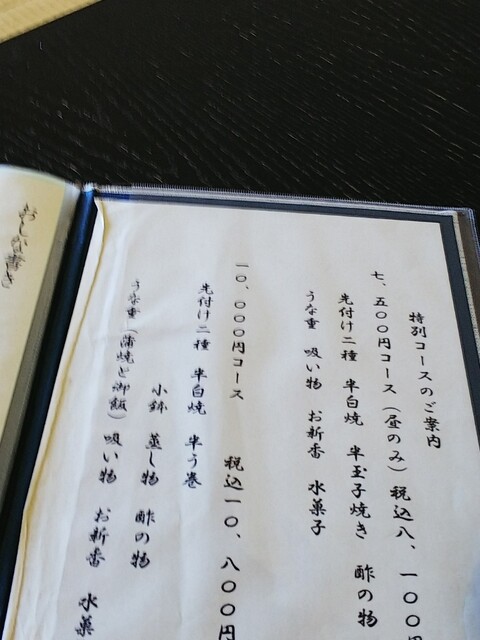 特別コースのご案内
七、五〇〇円コース(昼のみ) 税込八、一〇〇円
先付け二種 半白焼 半玉子焼き 酢の物
うな重 吸い物 お新香 水菓子
一〇、〇〇〇円コース 税込一〇、八〇〇円
先付け二種 半白焼 半う巻
小鉢 蒸し物 酢の物
うな重(蒲焼と御飯) 吸い物 お新香 水菓
おしながき